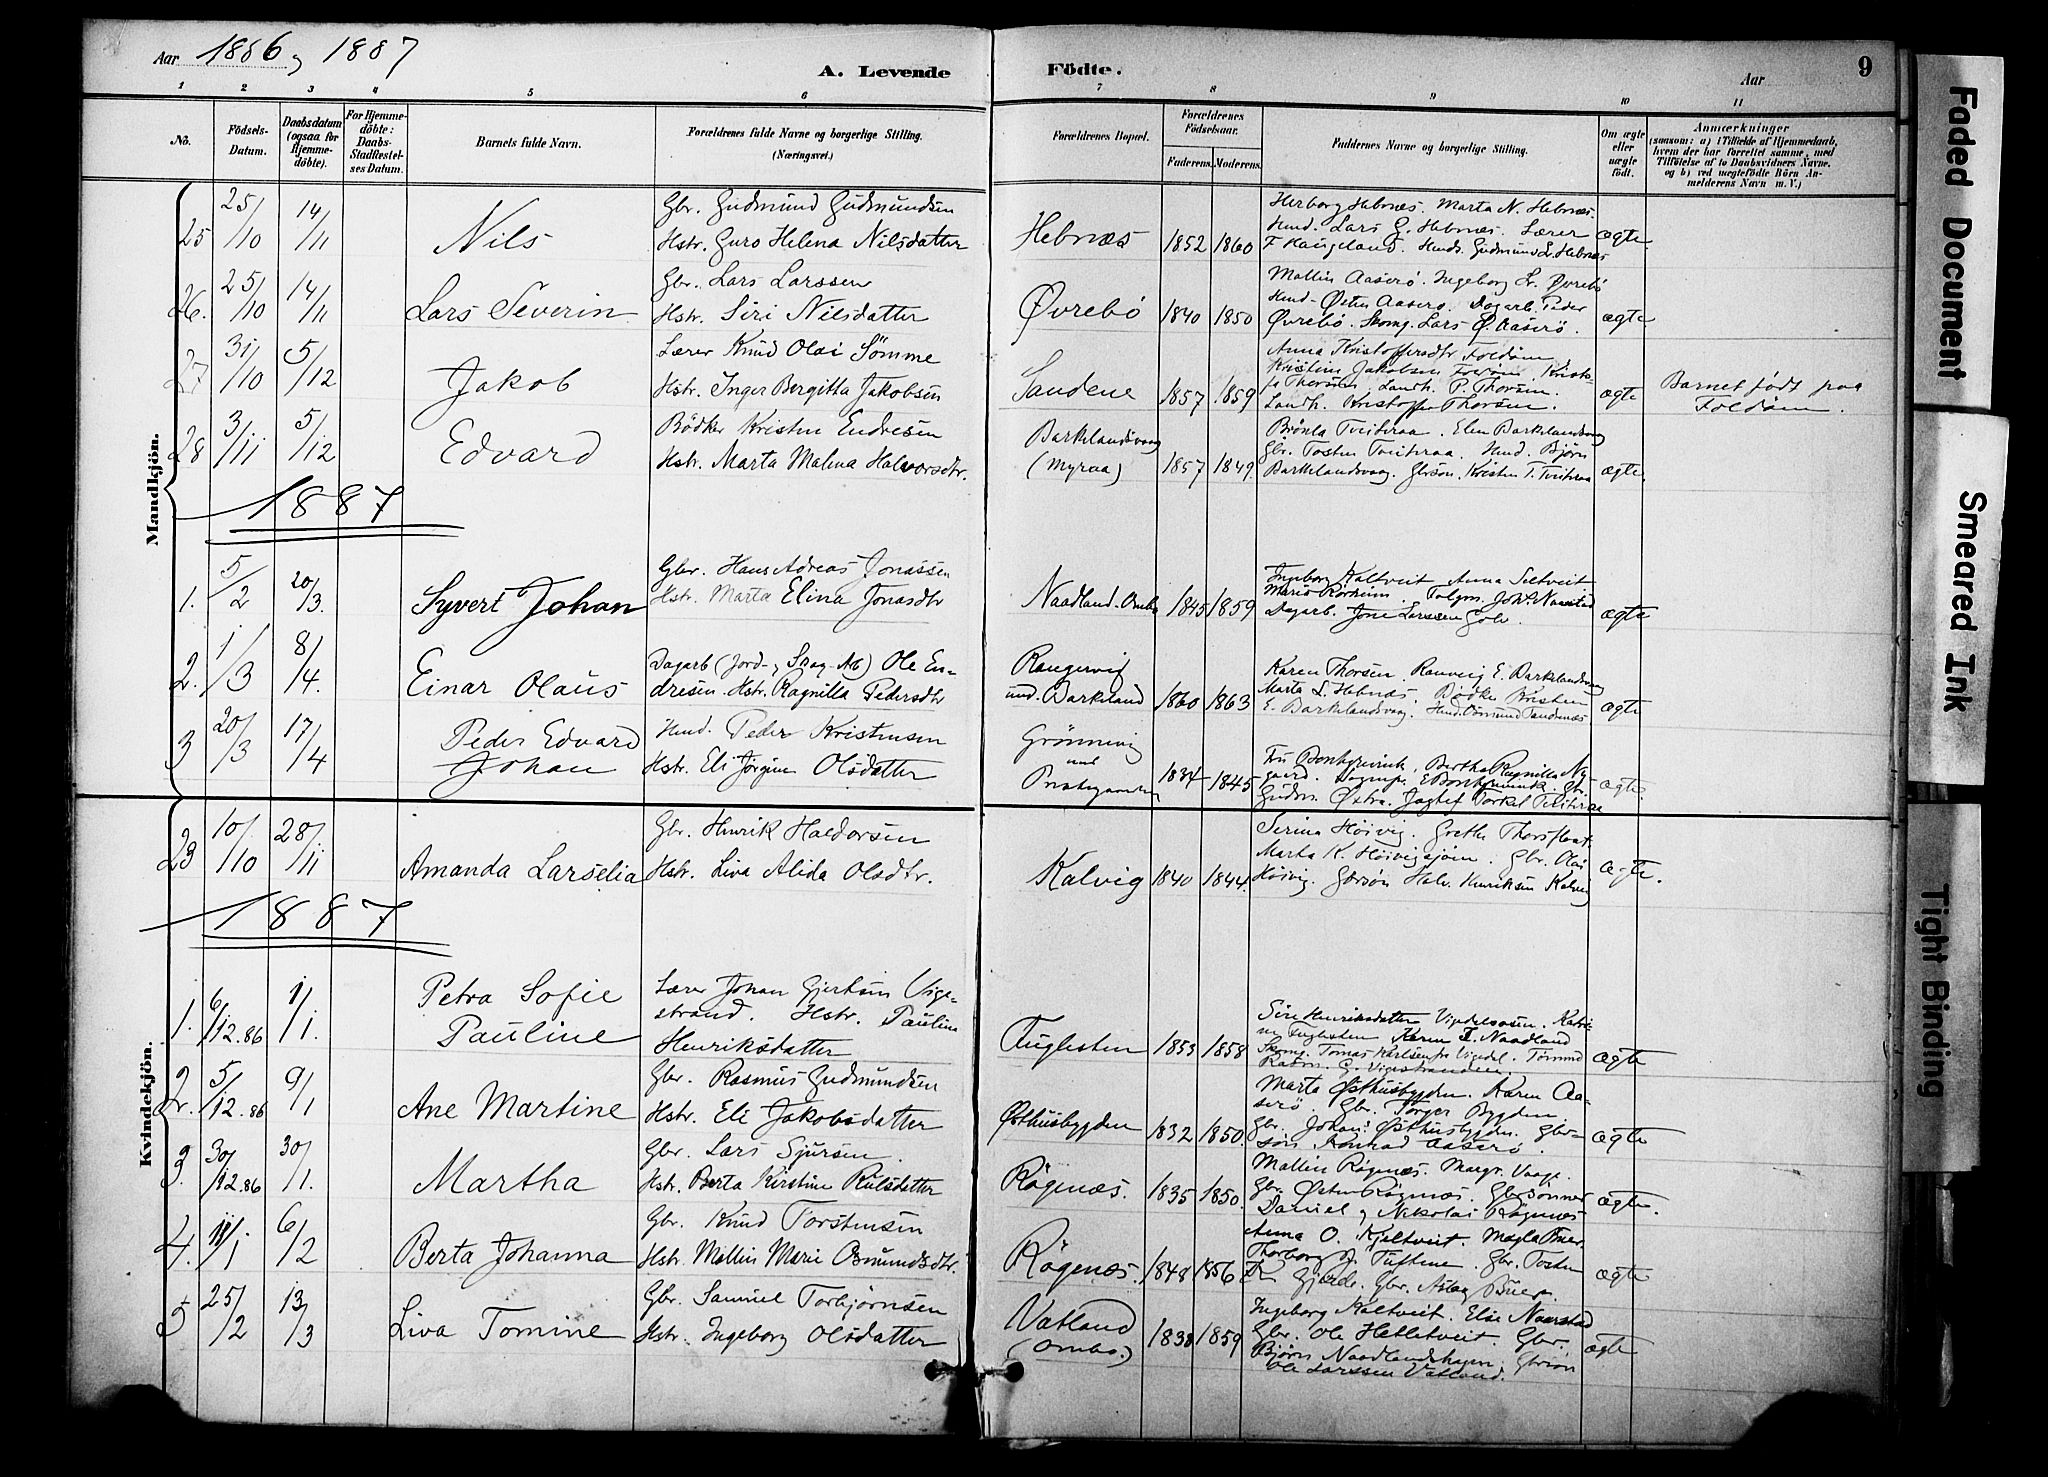 Aar 1886 og 1887
A. Levende Födte.
Aar
9
1 2 3 4 5 6 7 8 9 10 11
No.
Födsels-Datum.
Daabsdatum (ogsaa for Hjemmedöbte).
For Hjemmedöbte: Daabs-Stadfæstelses Datum.
Barnets fulde Navn.
Forældrenes fulde Navne og borgerlige Stilling. (Næringsvei.)
Forældrenes Bopæl.
Forældrenes Födselsaar.
Faderens. Moderens.
Faddernes Navne og borgerlige Stilling.
Om ægte eller uægte födt.
Anmærkninger
(saasom: a) i Tilfælde af Hjemmedaab, hvem der har forrettet samme, med Tilföielse af to Daabsvidners Navne, og b) ved uægtefödte Börn Anmelderens Navn m. V.)
Mandkjön.
25 25/10 14/11 Nils
Gbr. Gudmund Gudmundsen
Hstr. Guro Helena Nilsdatter
Hebnæs 1852 1860
Herborg Hebnæs. Marta N. Hebnæs.
Lars G. Hebnæs. Lærer
F. Haugeland. Gudmund L. Hebnæs
ægte
26. 25/10 14/11 Lars Severin
Gbr. Lars Larssen
Hstr. Siri Nilsdatter
Øvrebö 1840 1850
Mallin Aaserö. Ingeborg L. Øvrebö
Østen Aaserö. Dagarb. Peder
Øvrebö. Skomg. Lars Ø. Aaserö.
ægte
27 31/10 5/12 Jakob
Lærer Knud Olai Sömme
Hstr. Inger Bergitta Jakobsen
Sandene 1857 1859
Anna Kristoffersdtr Foldöen
Kristine Jakobsen
Thorsen. Landh. P. Thorsen.
Landh. Kristoffer Thorsen.
ægte
Barnet födt paa
Foldöen.
28 3/11 5/12 Edvard
Bödker Kristen Endresen
Hstr. Marta Malena Halvorsdtr.
Barkelandsvaag
(Myraa) 1857 1849
Tveiteraa. Elen Barkelandsvaag
Gbr. Tosten Tveiteraa. Björn
Barkelandsvaag. Gbrsön. Kristen T. Tveiteraa
ægte.
1887
1. 5/2 20/3. Syvert Johan
Gbr. Hans Adreas Jonassen
Hstr. Marta Elina Jonasdtr
Naadland. Ombo 1845 1859
Ingeborg Kaltveit Anna Seltveit
Joh. Naarstad
Dagarb. Jone Larssen
ægte
2. 1/3 8/4. Einar Olaus
Dagarb (Jord- og Skog-Arb) Ole En-
dresen. Hstr. Ragnilla Pedersdtr
und. Barkeland 1860 1863
Karen Thorsen. Ranveig E. Barkelandsvaag
Marta L. Hebnæs. Bödker Kristen
E. Barkelandsvaag.
ægte
3 20/3 17/4 Peder Edvard
Johan
Peder Kristensen
Hstr. Eli Jörgine Olsdatter
Grönnevig
und
Præstegaarden 1834 1845
Bertha Ragnilla Ny-
gaard.
Torkel Tveiteraa
ægte.
23 10/10 28/11 Amanda Larselia
Gbr. Henrik Haldorsen
Hstr. Liva Alida Olsdtr.
Kalvig 1840 1844.
Serina Höivig. Grethe
Marta K. Höivigsjöen. Gbr. Olai
Höivig. Gbrsön Halv. Henriksen Kalvig
ægte.
1887
Kvindekjön.
1. 6/12.86 1/1. Petra Sofie
Pauline
Lærer Johan Gjertsen Vige-
strand. Hstr. Pauline
Henriksdatter
Fuglesten 1853 1858
Siri Henriksdatter Vigdelsosen.
Fuglesten Karen T. Naadland
Skomg. Tomas Karlsen fra Vigdel.
ægte
2. 5/12.86 9/1 Ane Martine
Gbr. Rasmus Gudmundsen
Hstr. Eli Jakobsdatter
Østhusbygden 1832 1850.
Marta Østhusbygden. Karen Aa-
serö. Gbr. Torger Bygden.
Gbr. Johan Østhusbygden. Gbr-
sön. Konrad Aaserö.
ægte
3. 30/12.86 30/1. Martha
Gbr. Lars Sjursen.
Hstr. Berta Kirstine
Rögenæs. 1835 1850.
Mallin Rögenæs. Margr. Vaage.
Gbr. Østen Rögenæs. Gbrsönner
Daniel og Nikolai Rögenæs
ægte.
4. 11/1 6/2 Berta Johanna
Gbr. Knud Torstensen
Hstr. Mallin Marie Osmundsdtr.
Rögenæs. 1848 1856
Anna O. Kjeltveit.
Thorborg J. Tuftene. Gbr. Tosten
Gjerde. Gbr. Aslag
ægte
5 25/2 13/3 Liva Tomine
Gbr. Samuel Torbjörnsen
Hstr. Ingeborg Olsdatter
Vatland
(Ombo.) 1838 1859
Ingeborg Kaltveit. Else Naarstad
Gbr. Ole Hetletveit. Gbr.
Björn Naadlandshagen. Gbrsön
Ole Larssen Vatland.
ægte
Faded Document
Smeared Ink
Tight Binding